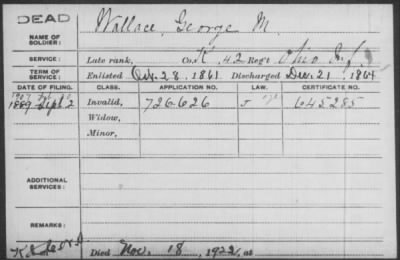 DEAD
Wallace, George M.
NAME OF SOLDIER:
SERVICE: Late rank, Co. K 42 Reg't Ohio Inf.
TERM OF SERVICE: Enlisted Oct. 28, 1861 Discharged Dec. 21, 1864
DATE OF FILING. CLASS. APPLICATION NO. LAW. CERTIFICATE NO.
1889 Sept 2 Invalid, 726.626 645285
Widow,
Minor,
ADDITIONAL SERVICES:
REMARKS:
Died Nov. 18, 1922, at